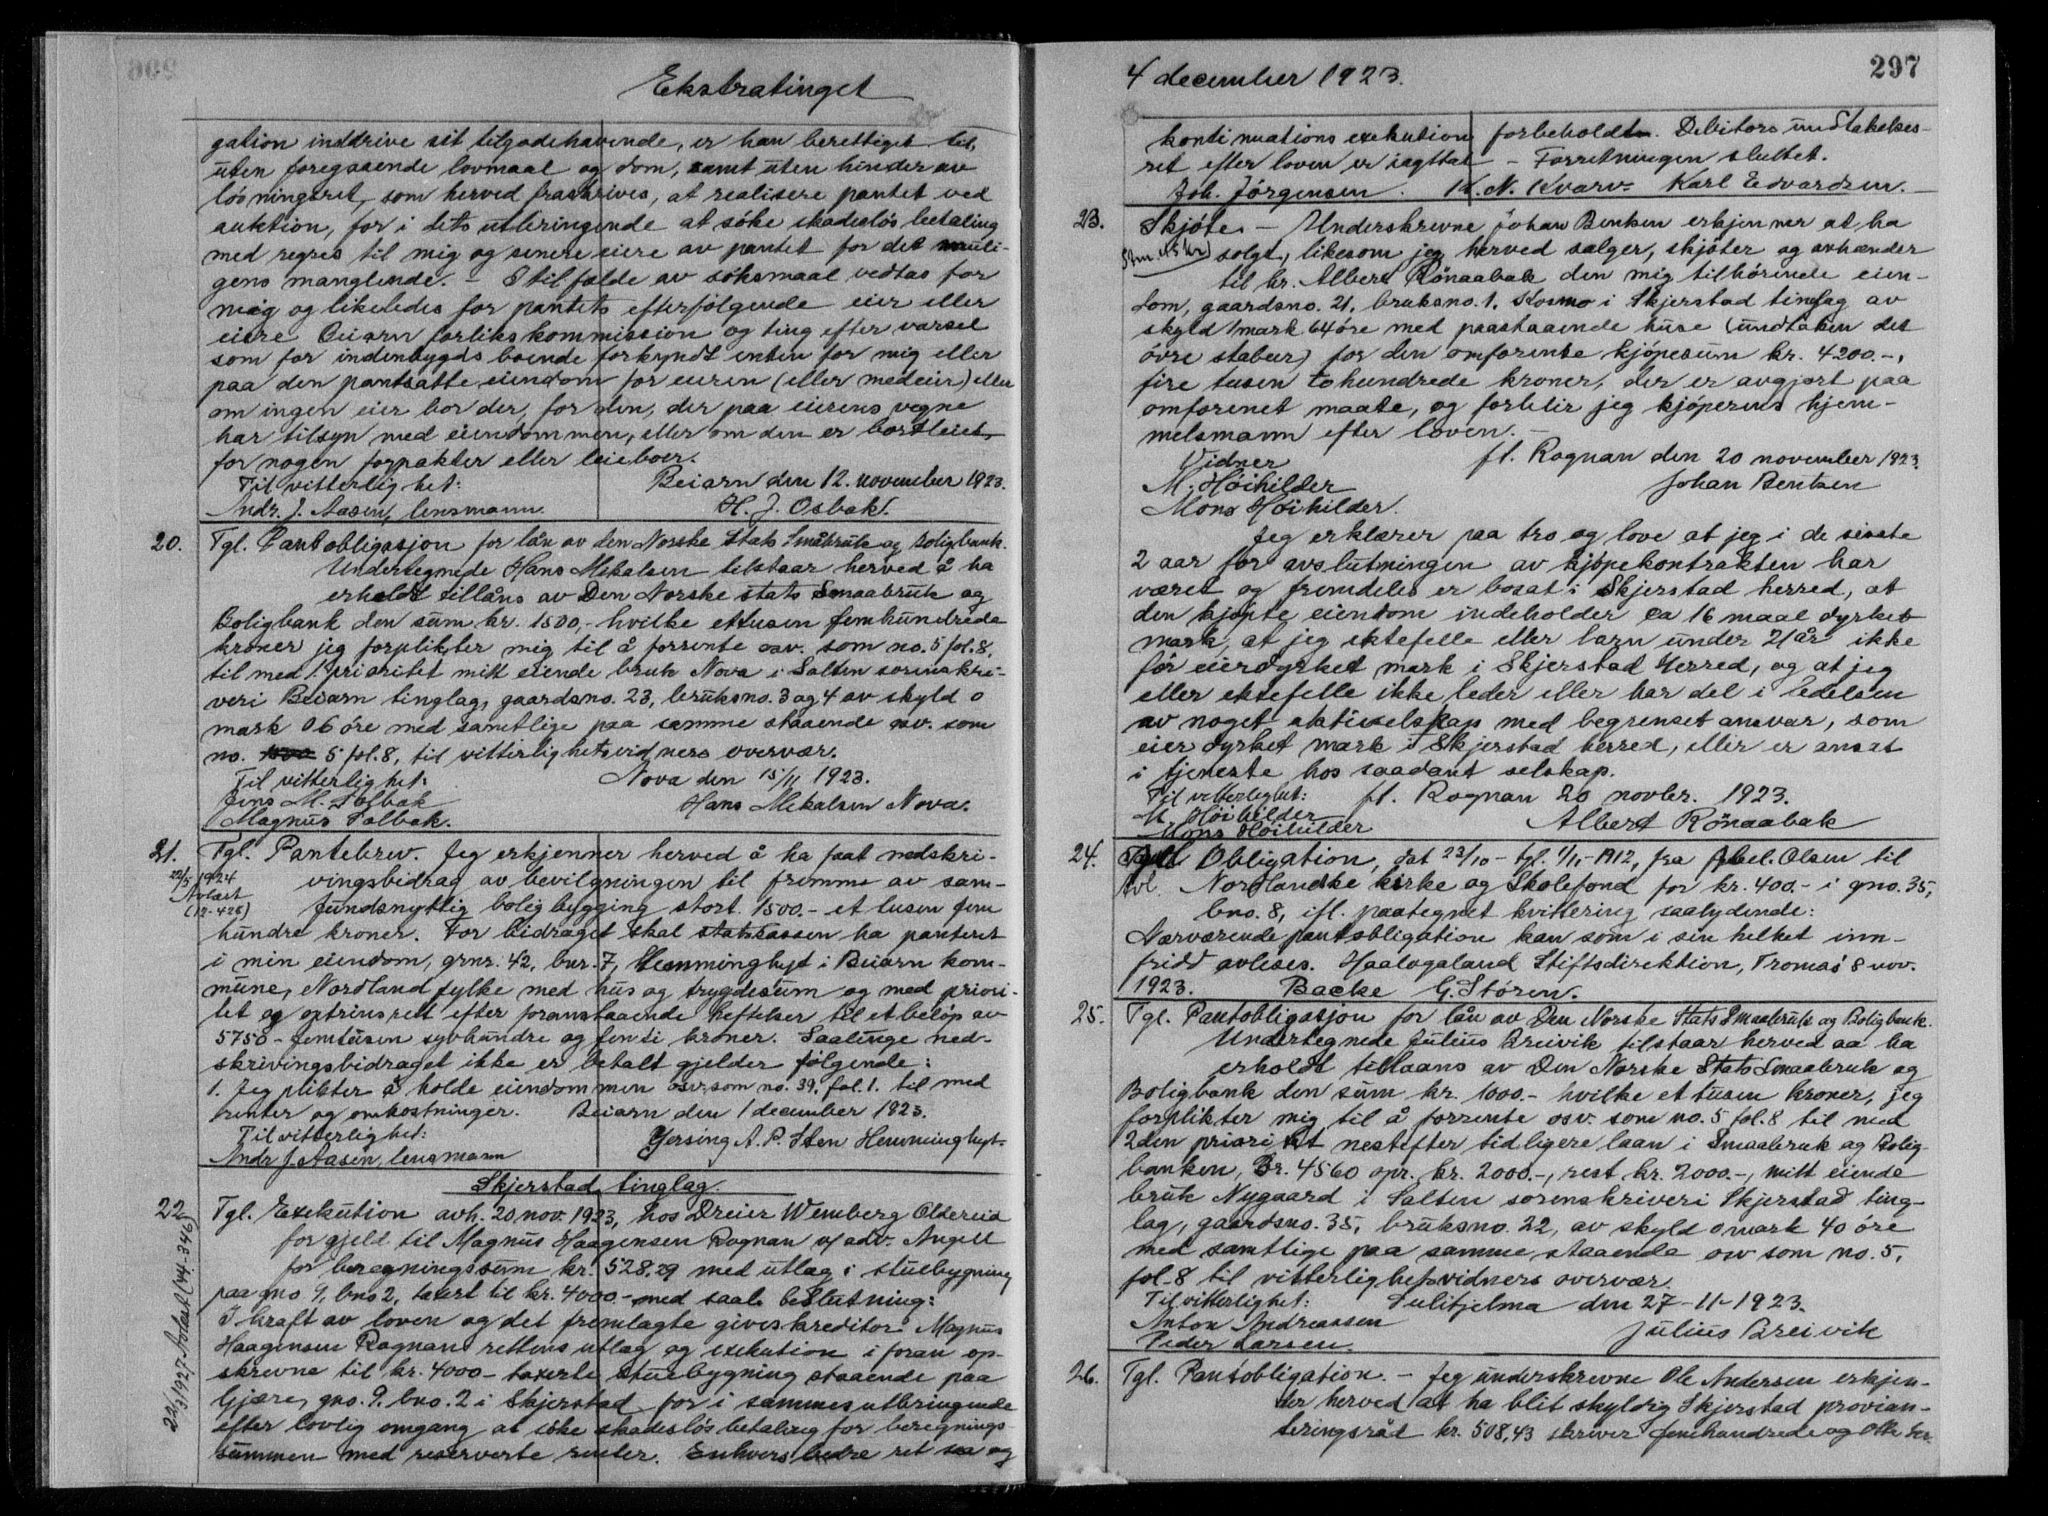 Ekstratinget
gation inddrive sit tilgodehavende, er han berettiget til,
uten foregaaende lovmaal og dom, samt uten hinder av
løsningsret, som herved fraskrives, at realisere pantet ved
auktion, for i dets utbringende at söke skadeslös betaling
med regres til mig og senere eiere av pantet for det muli-
gens manglende. - I tilfælde av söksmaal vedtas for
mig og likeledes for pantets efterfølgende eier eller
eiere Beiarn forlikskommission og ting efter varsel
som for indenbygds boende forkyndt enten for mig eller
paa den pantsatte eiendom for eieren (eller medeier) eller
om ingen eier bor der, for den, der paa eierens vegne
har tilsyn med eiendommen, eller om den er bortleiet,
for nogen forpakter eller leieboer.
Til vitterlighet: Beiarn den 12. november 1923.
Andr. J. Aasen, lensmann. H. J. Osbak.
20. Tgl. Pantobligasjon for lån av den Norske Stats Småbruk og Boligbank.
Undertegnede Hans Mikalsen tilstaar herved å ha
erholdt tillåns av Den Norske stats Smaabruk og
Boligbank den sum kr. 1500,- hvilke ettusen femhundrede
kroner jeg forplikter mig til å forrente osv. som no. 5 fol. 8,
til med 1. prioritet mitt eiende bruk Nova i Salten sorenskri-
veri Beiarn tinglag, gaardsno. 23, bruksno. 3 og 4 av skyld 0
mark 06 öre med samtlige paa samme staaende osv. som
no. 5 fol. 8, til vitterlighetsvidners overvær.
Til vitterlighet: Nova den 15/11 1923.
Jens M. Solbak Hans Mikalsen Nova.
Magnus Solbak.
21. Tgl. Pantebrev. Jeg erkjenner herved å ha faat nedskri-
22/5 1924 vingsbidrag av bevilgningen til fremme av sam-
Avlæst fundsnyttig boligbygging stort 1500.- et tusen fem
(12-426)
hundre kroner. For bidraget skal statskassen ha panteret
i min eiendom, grnr. 42, bnr. 7, Hemminghyt i Beiarn kom-
mune, Nordland fylke med hus og trygdesum og med priori-
tet og optrinsrett efter foranstaaende heftelser til et beløp av
5750 - femtusen syvhundre og femti kroner. Saalenge ned-
skrivingsbidraget ikke er betalt gjelder følgende:
1. Jeg plikter å holde eiendommen osv. som no. 39, fol. 1. til med
renter og omkostninger. Beiarn den 1 december 1923.
Til vitterlighet: Yersing A. P. Sten Hemminghyt.
Andr J. Aasen, lensmann
Skjerstad tinglag.
22. Tgl. Exekution avh. 20 nov. 1923, hos Dreier Wemberg Oldereid
for gjeld til Magnus Haagensen Rognan v/ adv. Angell
for beregningssum kr. 528,29 med utlæg i stuebygning
paa gno 9, bno 2, taxert til kr. 4000.- med saal. beslutning:
I kraft av loven og det fremlagte gives kreditor Magnus
Haagensen Rognan rettens utlæg og exekution i foran op-
skrevne til kr. 4000- taxerte stuebygning staaende paa
Gjære, gno. 9. bno. 2 i Skjerstad for i sammes utbringende
efter lovlig omgang at söke skadeslös betaling for beregnings-
summen med reserverte renter. Enhvers bedre ret saa og
22/3 1927 Avlæst (44-346)
4 december 1923.
297
kontinuations exekution forbeholdt. Debitors undtakelses-
ret efter loven er iagttat - Forretningen sluttet.
Joh. Jörgensen. K. N. Kvarv. Karl Edvardsen.
23. Skjöte. - Underskrevne Johan Bentsen erkjenner at ha
solgt, likesom jeg herved sælger, skjöter og avhænder
til hr. Albert Rönaabak den mig tilhörende eien-
dom, gaardsno. 21, bruksno. 1. Kosmo i Skjerstad tinglag av
skyld 1 mark 64 öre med paastaaende huse (undtaken det
övre stabur) for den omforente kjöpesum kr. 4200.-,
fire tusen tohundrede kroner, der er avgjort paa
omforenet maate, og forblir jeg kjöperens hjem-
melsmann efter loven. -
Vidner ft. Rognan den 20 november 1923.
M. Höihilder Johan Bentsen
Mons Höihilder.
Jeg erklærer paa tro og love at jeg i de sisste
2 aar for avslutningen av kjöpekontrakten har
været og fremdeles er bosat i Skjerstad herred, at
den kjöpte eiendom indeholder ca 16 maal dyrket
mark, at jeg ektefelle eller barn under 21 år ikke
för eier dyrket mark i Skjerstad Herred, og at jeg
eller ektefelle ikke leder eller har del i ledelsen
av noget aktieselskap med begrenset ansvar, som
eier dyrket mark i Skjerstad herred, eller er ansat
i tjeneste hos saadant selskap.
Til vitterlighet: ft. Rognan 20 novbr. 1923.
M. Höihilder Albert Rönaabak
Mons Höihilder
24. Obligation, dat 23/10 - tgl. 1/11-1912, fra Abel. Olsen til
Avl. Nordlandske kirke og Skolefond for kr. 400.- i gno. 35,
bno. 8, ifl. paategnet kvittering saalydende:
Nærværende pantobligation kan som i sin helhet inn-
fridd avleses. Haalogaland Stiftsdirektion, Tromsö 8 nov.
1923. Backe G. Stören.
25. Tgl. Pantobligasjon for lån av Den Norske Stats Smaabruk og Boligbank.
Undertegnede Julius Breivik tilstaar herved aa ha
erholdt tillaans av Den Norske Stats Smaabruk og
Boligbank den sum kr. 1000.- hvilke et tusen kroner, jeg
forplikter mig til å forrente osv. som no. 5 fol. 8 til med
2den prioritet nestefter tidligere laan i Smaabruk og Bolig-
banken, Br. 4560 opr. kr. 2000.-, rest kr. 2000.-, mitt eiende
bruk Nygaard i Salten sorenskriveri Skjerstad ting-
lag, gaardsno. 35, bruksno. 22, av skyld 0 mark 40 öre
med samtlige paa samme staaende osv som no. 5,
fol. 8 til vitterlighetsvidners overvær.
Til vitterlighet: Sulitjelma den 27-11-1923.
Anton Andreassen Julius Breivik
Peder Larsen.
26. Tgl. Pantobligation. - Jeg underskrevne Ole Andersen erkjen-
der herved at ha blit skyldig Skjerstad provian-
teringsråd kr. 508,43 skriver femhundrede og otte kr.